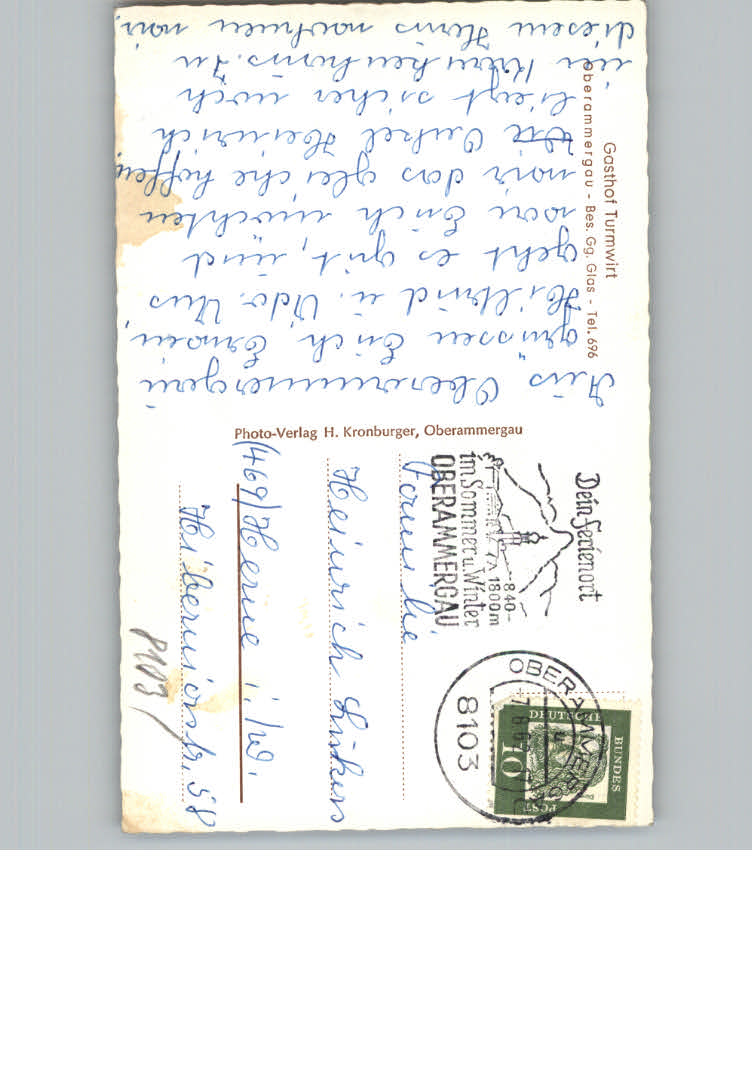 Aus Oberammergau
grüssen Euch Erwin,
Hiltrud u. Udo. Uns
geht es gut, und
von Euch möchten
wir das gleiche hoffen,
Onkel Heinrich
liegt sicher noch
im Krankenhaus. In
diesem Haus wohnen wir.
Gasthof Turmwirt
Oberammergau - Bes. Gg. Glas - Tel. 696
Photo-Verlag H. Kronburger, Oberammergau
Dein Ferienort
840-
1800m
im Sommer u. Winter
OBERAMMERGAU
OBERAMMERGAU
8103
DEUTSCHE
BUNDES
POST
10
Familie
Heinrich
(469) Herne i./W.
Hiberniastr. 58
8103